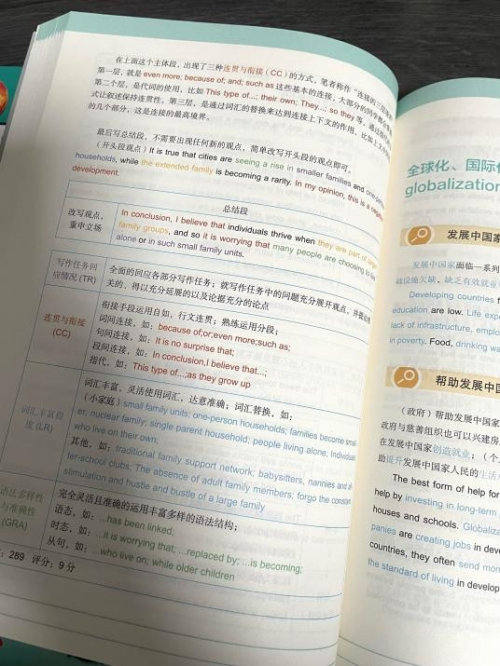 在上面这个主体段，出现了三种连贯与衔接（CC）的方式，笔者称作“连接的三
第一层，就是 even more; because of; and; such as 这些基本的连接，大部分的同学都
第二个层，是代词的使用，比如 This type of...; their own; They...; so they 等，通过
式让叙述保持连贯性。第三层，是通过词汇的替换来达到连接上下文的作用，比如
的几个部分，这是连接的最高境界。
最后写总结段，不需要出现任何新的观点，简单改写开头段的观点即可。
（开头段观点）It is true that cities are seeing a rise in smaller families and one-person
households, while the extended family is becoming a rarity. In my opinion, this is a negative
development.
总结段
改写观点，
重申立场
In conclusion, I believe that individuals thrive when they are part of large
family groups, and so it is worrying that many people are choosing to live
alone or in such small family units.
写作任务回
应情况 (TR)
全面的回应各部分写作任务；就写作任务中的问题充分展开观点，并提出
关的、得以充分延展的以及论据充分的论点
连贯与衔接
(CC)
衔接手段运用自如，行文连贯；熟练运用分段；
词间连接，如：because of;or;even more;such as;
句间连接，如：It is no surprise that;
段间连接，如：In conclusion,I believe that...;
指代，如：This type of...;as they grow up
词汇丰富程
度 (LR)
词汇丰富，灵活使用词汇，达意准确；词汇替换，如：
（小家庭）small family units; one-person households; families become small
er; nuclear family; single parent household; people living alone; individuals
who live on their own,
其他，如：traditional family support network; babysitters, nannies and af
ter-school clubs. The absence of adult family members; forgo the constant
stimulation and hustle and bustle of a large family
语法多样性
与准确性
(GRA)
完全灵活且准确的运用丰富多样的语法结构；
语态，如：...has been linked,
时态，如：...it is worrying that; ...replaced by; ...is becoming;
从句，如：...who live on; while older children
: 289 评分：9 分
全球化、国际
globalization
发展中国家
发展中国家面临一系列
础设施欠缺，缺乏有效就业
Developing countries
education are low. Life expe
lack of infrastructure, employ
in poverty. Food, drinking wa
帮助发展中国
（政府）帮助发展中国家
政府与慈善组织也可以兴建房
在发展中国家创造就业；（个
助提升发展中国家人民的生活
The best form of help for
help by investing in long-term
houses and schools. Globaliz
panies are creating jobs in deve
countries, they often send mon
the standard of living in develop